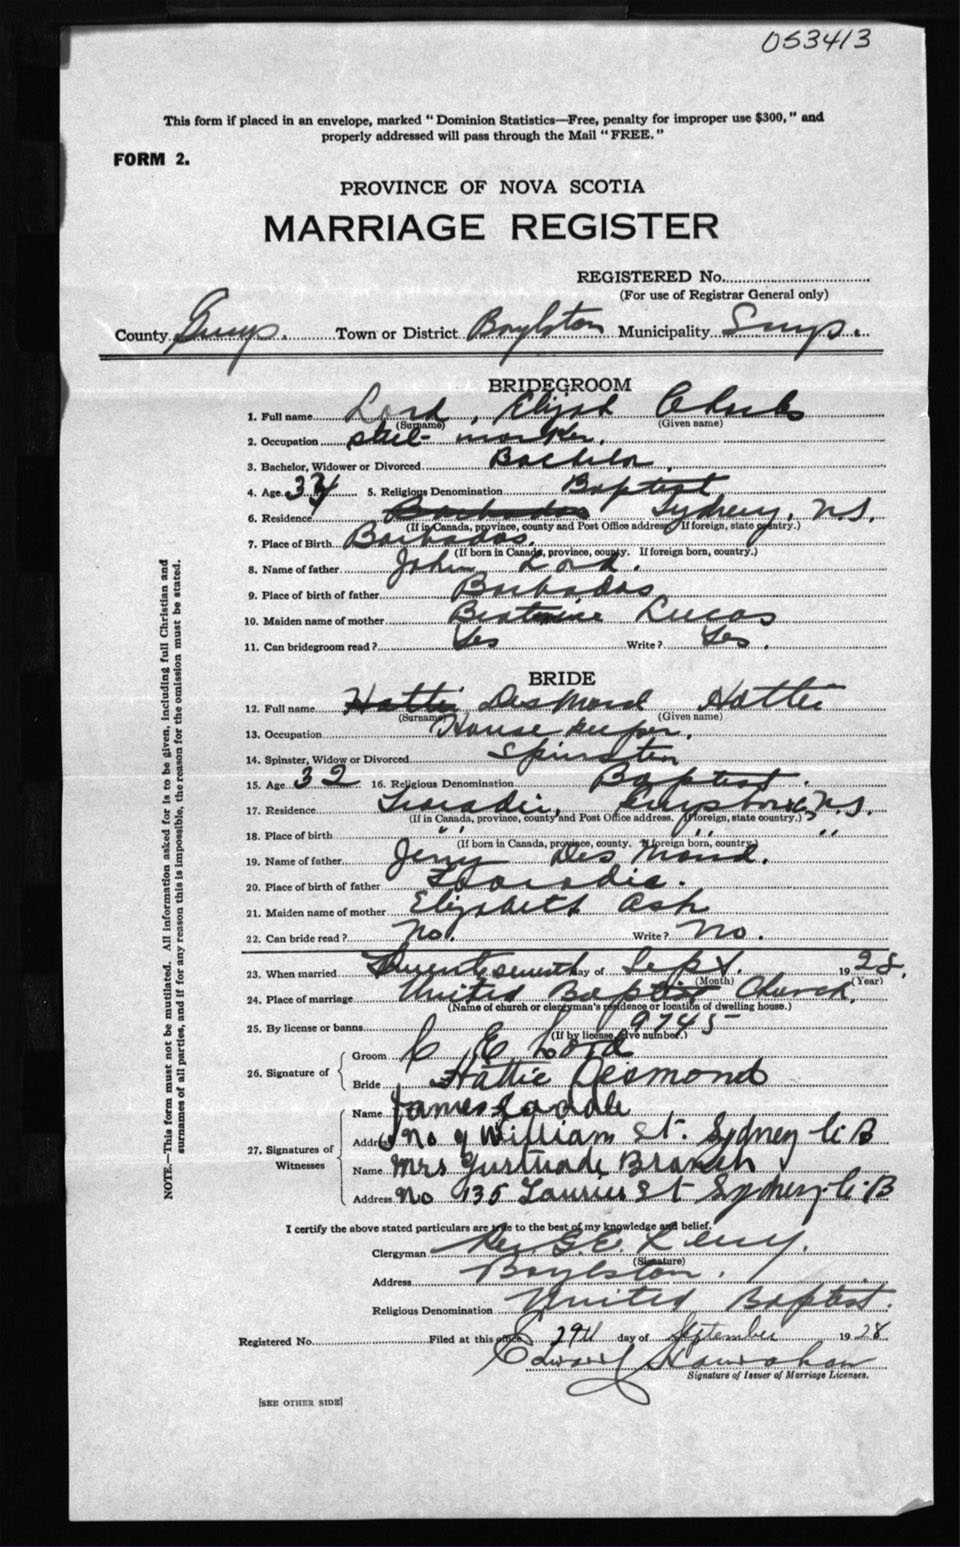 053413
This form if placed in an envelope, marked "Dominion Statistics—Free, penalty for improper use $300," and
properly addressed will pass through the Mail "FREE."
FORM 2.
PROVINCE OF NOVA SCOTIA
MARRIAGE REGISTER
REGISTERED No.
(For use of Registrar General only)
County Guys. Town or District Boylston Municipality Guys.
BRIDEGROOM
1. Full name Lord, Elijah Charles
(Surname) (Given name)
2. Occupation steel- worker.
3. Bachelor, Widower or Divorced Bachelor.
4. Age 34 5. Religious Denomination Baptist
6. Residence Barbados Sydney, N.S.
(If in Canada, province, county and Post Office address. If foreign, state country.)
7. Place of Birth Barbados.
(If born in Canada, province, county. If foreign born, country.)
8. Name of father John Lord.
9. Place of birth of father Barbados
10. Maiden name of mother Lucas
11. Can bridegroom read? Yes Write? Yes.
BRIDE
12. Full name Hattie Desmond Hattie
(Surname) (Given name)
13. Occupation House keeper.
14. Spinster, Widow or Divorced Spinster
15. Age 32 16. Religious Denomination Baptist.
17. Residence Tracadie, Guysboro, N.S.
(If in Canada, province, county and Post Office address. If foreign, state country.)
18. Place of birth " " " " "
(If born in Canada, province, county. If foreign born, country.)
19. Name of father Jerry Desmond.
20. Place of birth of father Tracadie.
21. Maiden name of mother Elizabeth Ash
22. Can bride read? No. Write? No.
23. When married Twenty seventh day of Sept. 1928.
(Month) (Year)
24. Place of marriage United Baptist Church,
(Name of church or clergyman's residence or location of dwelling house.)
25. By license or banns 9745
(If by license, give number.)
26. Signature of Groom C E Lord
Bride Hattie Desmond
27. Signatures of Witnesses
Name James
Address no 9 William St. Sydney C.B
Name Mrs Gurtrude Branch
Address No 135 Laurier St Sydney. C. B
I certify the above stated particulars are true to the best of my knowledge and belief.
Clergyman Rev. G.E. Levy.
(Signature)
Address Boylston.
Religious Denomination United Baptist.
Registered No. Filed at this office 29th day of September 1928
Edward
Signature of Issuer of Marriage Licenses.
[SEE OTHER SIDE]
NOTE.—This form must not be mutilated. All information asked for is to be given, including full Christian and
surnames of all parties, and if for any reason this is impossible, the reason for the omission must be stated.